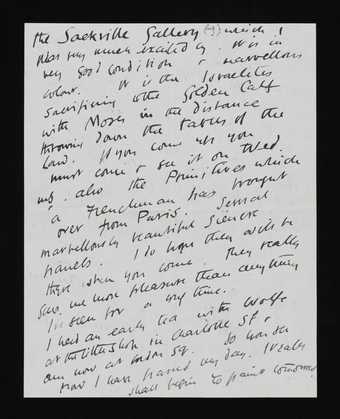 the Sackville Gallery (–) which I
was very much excited by. It is in
very good condition & marvellous
colour. It is the Israelites
sacrificing to the Golden Calf
with Moses in the distance
throwing down the tables of the
Law. If you come up you
must come & see it on Wed.
also the Primitives which
a Frenchman has brought
over from Paris. Several
marvellously beautiful Sienese
panels. I do hope they will be
there when you come. They really
give me more pleasure than anything
I've seen for a long time.
I had an early tea with Wolfe
at the little shop in Charlotte St &
am now at Gordon Sq. So you see
how I have passed my day. I really
shall begin to paint tomorrow